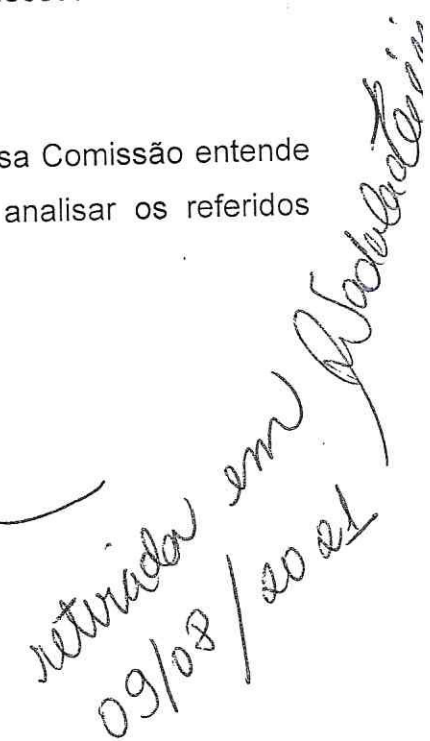 sa Comissão entende
analisar os referidos
retirada em
09/08/2021